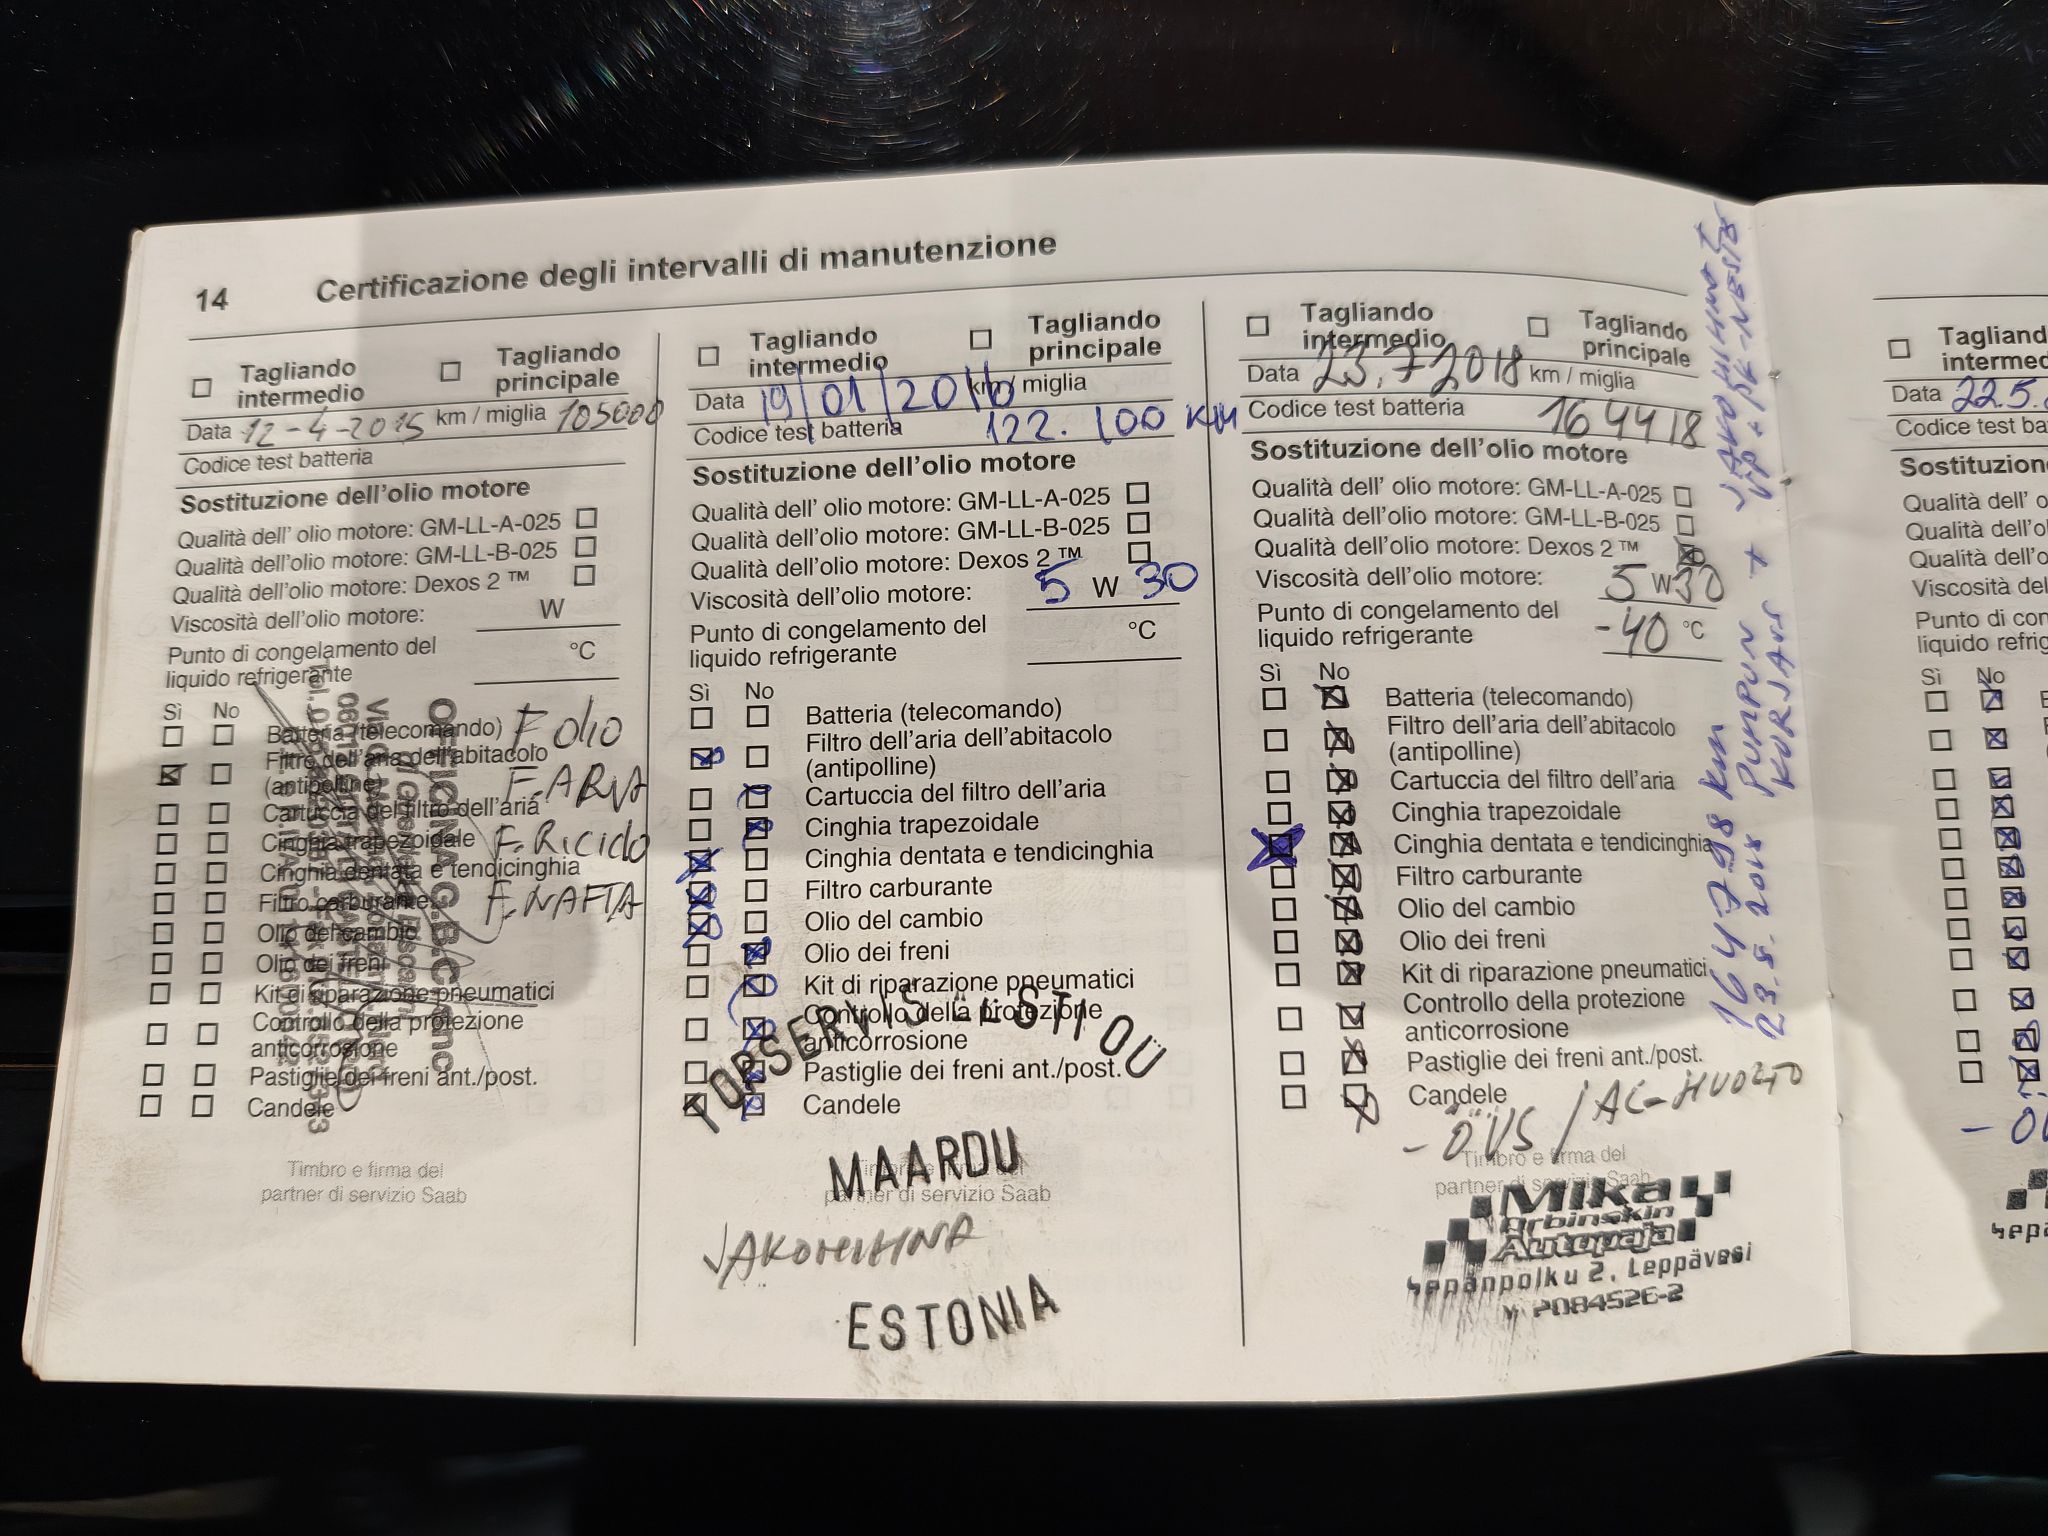 14 Certificazione degli intervalli di manutenzione
Tagliando intermedio
Tagliando principale
Data 12-4-2015 km / miglia 105000
Codice test batteria
Sostituzione dell'olio motore
Qualità dell' olio motore: GM-LL-A-025
Qualità dell' olio motore: GM-LL-B-025
Qualità dell'olio motore: Dexos 2 ™
Viscosità dell'olio motore: W
Punto di congelamento del °C
liquido refrigerante
Sì No
Batteria (telecomando)
Filtro dell'aria dell'abitacolo
(antipolline)
Cartuccia del filtro dell'aria
Cinghia trapezoidale
Cinghia dentata e tendicinghia
Filtro carburante
Olio del cambio
Olio dei freni
Kit di riparazione pneumatici
Controllo della protezione
anticorrosione
Pastiglie dei freni ant./post.
Candele
F. Olio
F. ARIA
F. NAFTA
OFFICINA G.B.C.
Timbro e firma del
partner di servizio Saab
Tagliando intermedio
Tagliando principale
Data 19/01/2016 km / miglia
Codice test batteria 122.100 KM
Sostituzione dell'olio motore
Qualità dell' olio motore: GM-LL-A-025
Qualità dell' olio motore: GM-LL-B-025
Qualità dell'olio motore: Dexos 2 ™
Viscosità dell'olio motore: 5 W 30
Punto di congelamento del °C
liquido refrigerante
Sì No
Batteria (telecomando)
Filtro dell'aria dell'abitacolo
(antipolline)
Cartuccia del filtro dell'aria
Cinghia trapezoidale
Cinghia dentata e tendicinghia
Filtro carburante
Olio del cambio
Olio dei freni
Kit di riparazione pneumatici
Controllo della protezione
anticorrosione
Pastiglie dei freni ant./post.
Candele
TOPSERVIS EESTI OÜ
Timbro e firma del
partner di servizio Saab
MAARDU
JAKOHIHNA
ESTONIA
Tagliando intermedio
Tagliando principale
Data 23.7.2018 km / miglia
Codice test batteria 164418
Sostituzione dell'olio motore
Qualità dell' olio motore: GM-LL-A-025
Qualità dell' olio motore: GM-LL-B-025
Qualità dell'olio motore: Dexos 2 ™
Viscosità dell'olio motore: 5 W 30
Punto di congelamento del -40 °C
liquido refrigerante
Sì No
Batteria (telecomando)
Filtro dell'aria dell'abitacolo
(antipolline)
Cartuccia del filtro dell'aria
Cinghia trapezoidale
Cinghia dentata e tendicinghia
Filtro carburante
Olio del cambio
Olio dei freni
Kit di riparazione pneumatici
Controllo della protezione
anticorrosione
Pastiglie dei freni ant./post.
Candele
- ÖVS / AC-HUOLTO
Timbro e firma del
partner di servizio Saab
Mika
Orbinskin
Autopaja
Sepänpolku 2, Leppävesi
Y 2084526-2
164798 km JAKOHIHNAT
23.8.2018 PUMPUN + VP + JK-NESTE
KORJAUS
Tagliand
intermed
Data 22.5.
Codice test ba
Sostituzion
Qualità dell' o
Qualità dell' ol
Qualità dell'o
Viscosità del
Punto di con
liquido refrig
Sì No